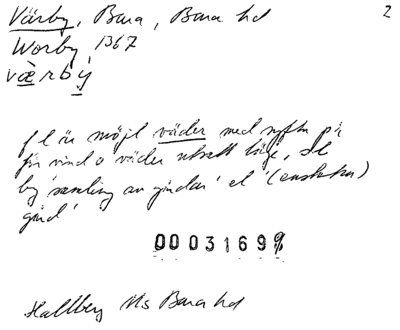 Värby, Bara, Bara hd 2
Worby 1367
værbý
f l är möjl väder med syftn på
för vind o väder utsatt läge, st
by 'samling av gårdar' el '(enstaka)
gård'
00031699
Hallberg Ms Bara hd